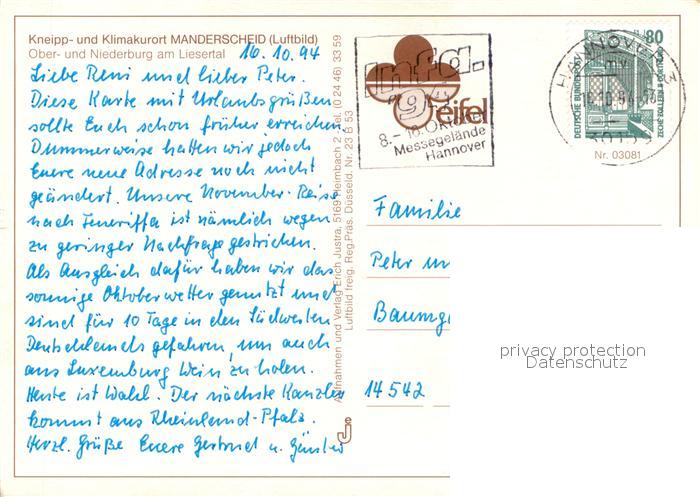 Kneipp- und Klimakurort MANDERSCHEID (Luftbild)
Ober- und Niederburg am Liesertal
16.10.94
Liebe Reni und lieber Peter.
Diese Karte mit Urlaubsgrüßen
sollte Euch schon früher erreichen
Dummerweise hatten wir jedoch
Euere neue Adresse noch nicht
geändert. Unsere November-Reise
nach Teneriffa ist nämlich wegen
zu geringer Nachfrage gestrichen.
Als Ausgleich dafür haben wir das
sonnige Oktoberwetter genutzt und
sind für 10 Tage in den Südwesten
Deutschlands gefahren, um auch
aus Luxemburg Wein zu holen.
Heute ist Wahl. Der nächste Kanzler
kommt aus Rheinland-Pfalz.
Herzl. Grüße Euere Gertrud u. Günter
Aufnahmen und Verlag Erich Justra, 5169 Heimbach 2, Tel. (0 24 46) 33 59
Luftbild freig. Reg.Präs. Düsseld. Nr. 23 B 53
j
infa.
94
8.–16. Okt.
Messegelände
Hannover
eifel
HANNOVER
80
DEUTSCHE BUNDESPOST
ZECHE ZOLLERN II DORTMUND
Nr. 03081
Familie
Peter un
Baumg
14542
privacy protection
Datenschutz